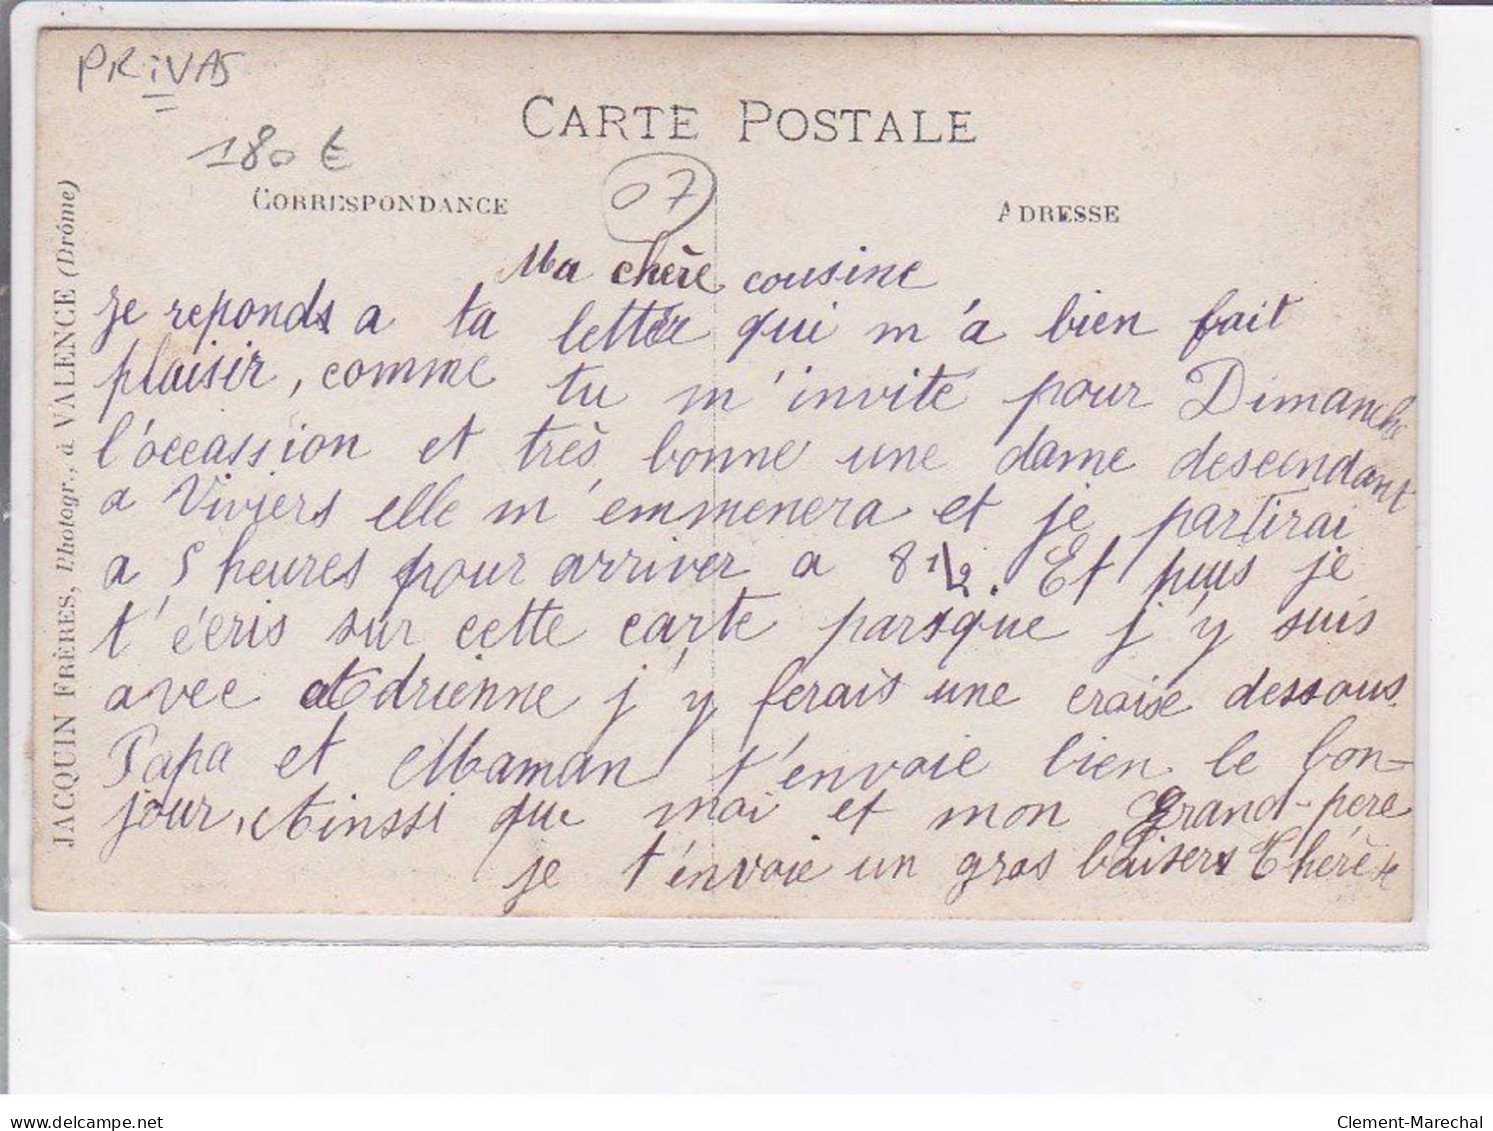 PRIVAS
180 €
CARTE POSTALE
07
CORRESPONDANCE
ADRESSE
JACQUIN FRÈRES, Photogr., à VALENCE (Drôme)
Ma chère cousine
je reponds a ta letter qui m'a bien fait
plaisir, comme tu m'invite pour Dimanche
l'occassion et très bonne une dame descendant
a Viviers elle m'emmenera et je partirai
a 5 heures pour arriver a 8 1/2. Et puis je
t'écris sur cette carte parsque j'y suis
avec Adrienne j'y ferais une croise dessous
Papa et Maman t'envoie bien le bon-
jour, Ainssi que moi et mon grand-pere
je t'envoie un gros baisers Thérèse
Clement-Marechal
www.delcampe.net